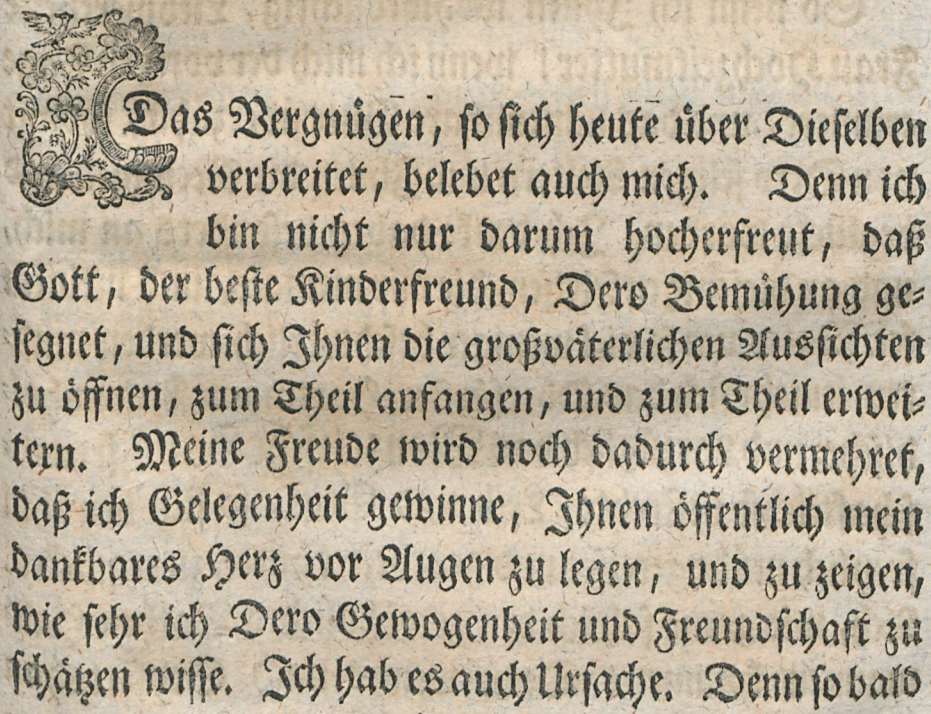 Das Vergnügen, so sich heute über Dieselben
verbreitet, belebet auch mich. Denn ich
bin nicht nur darum hocherfreut, daß
Gott, der beste Kinderfreund, Dero Bemühung ge-
segnet, und sich Ihnen die großväterlichen Aussichten
zu öffnen, zum Theil anfangen, und zum Theil erwei-
tern. Meine Freude wird noch dadurch vermehret,
daß ich Gelegenheit gewinne, Ihnen öffentlich mein
dankbares Herz vor Augen zu legen, und zu zeigen,
wie sehr ich Dero Gewogenheit und Freundschaft zu
schätzen wisse. Ich hab es auch Ursache. Denn so bald